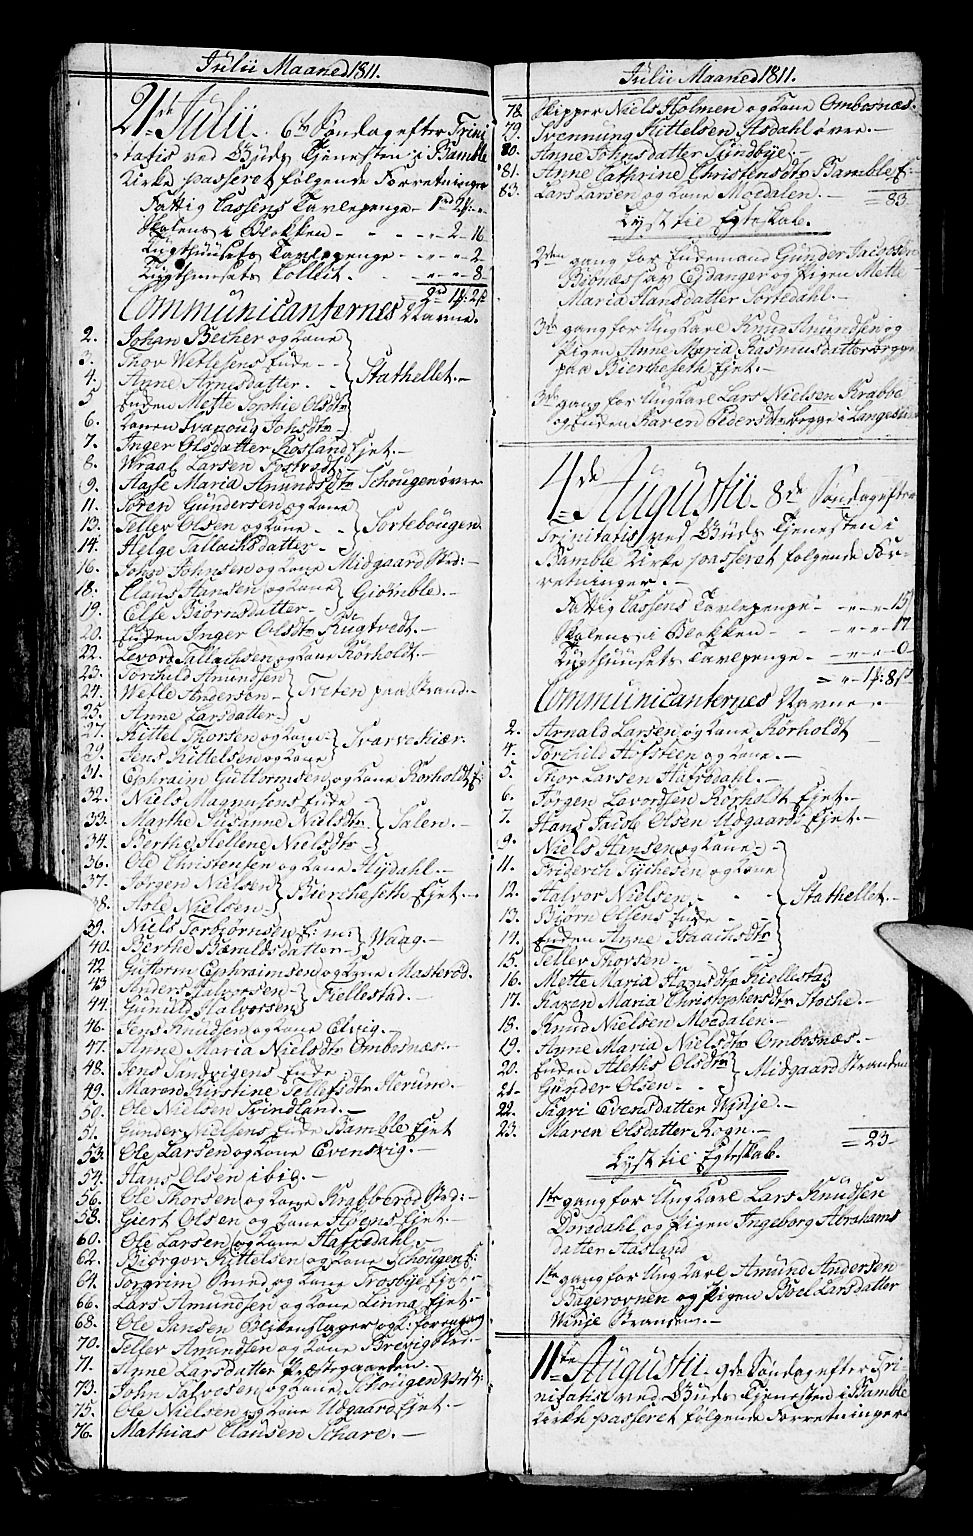 Julii Maaned 1811.
21de Julii. 6te Søndag efter Trini
tatis ved Guds Tjenesten i Bamble
Kirke passeret følgende Forretninger
Fattig Cassens Tavlepenge
Skolens i Blokken - - - " - 2 - 16
Tugthuusets Tavlepenge - " - " - 2
Tugthuusets Collect - " - " - 8
Communicanternes Navne.
2. Johan Becher og Kone
3. Thor Weflesens Enke
4. Anne Arnesdatter. - Stathellet. -
5 Enken Mette Sophie Olsdtr
6. Konen Svanoug Johsdtr
7. Inger Olsdatter Røsland Ejet. -
8. Wraal Larsen Tostvedt. -
9. Aase Maria Amundsdtr Schougen øvre
11. Søren Gundersen og Kone
13. Teller Olsen og Kone - Sortebougen
14. Helge Tallachsdatter -
16. John Johnsen og Kone Midgaard Strd: -
18. Claus Hansen og Kone Giømble. -
19. Else Biørnsdatter -
20. Enken Inger Olsdtr Rugtvedt. -
22. Levord Tallachsen og Kone Rørholt. -
23. Torchild Amundsen
24. Wefle Andersen - Treten paa Strand -
25. Anne Larsdatter -
27. Kittel Thorsen og Kone - Svarveskiær.
29. Jens Kittelsen og Kone
31. Ephraim Guttormsen og Kone Rørholdt E
32. Niels Magnusens Enke
33. Marthe Susanne Nielsdtr Salen. -
34. Berthe Hellene Nielsdtr
36. Ole Christensen og Kone Hydahl. -
37. Jørgen Nielsen Bierchesethe Ejet. -
38. Asle Nielsen -
39. Niels Torbiørnsen E: m:
40. Berthe Haraldsdatter Waag. -
42. Guttorm Ephraimsen og Kone Masterød
43 Anders Halvorsen Fiellestad. -
44. Gunuld Halvorsen
46. Jens Knudsen og Kone Elvig. -
47. Anne Maria Nielsdtr Ombosnæs. -
48. Jens Sandvigens Enke
49. Maren Kirstine Tellefsdtr Herum.
50. Ole Nielsen Svindland. -
51. Gunder Nielsens Enke Bamble Ejet
53. Ole Larsen og Kone Evensvig. -
54. Hans Olsen ibid. -
56. Ole Thorsen og Kone Krabberød Strd: -
58. Giert Olsen og Kone Ejet. -
60. Ole Larsen og Kone Hafsdahl. -
62. Biørgor Kittelsen og Kone Schougen E:
64. Torgrim Smed og Kone Trosbye Ejet
66. Lars Amundsen og Kone Linna Ejet. -
68. Ole Jansen
70. Teller Amundsen og Kone Brevig Strd: -
71. Anne Larsdatter Præstegaarden
73. John Halvosen og Kone Schougen
75. Ole Nielsen og Kone Udgaard Ejet. -
76. Mathias Clausen Schare. -
Julii Maaned 1811.
78. Skipper Niels Holmen og Kone Ombosnæs.
79. Svennung Kittelsen Asdahl øvre. -
80. Anne Johnsdatter Lundbye. -
81. Anne Cathrine Christensdtr Bamble E:
83. Lars Larsen og Kone Moedalen. - = 83
Lyst til Egteskab.
2den gang for Enkemand Gunder Jacobsen
Biønæs af Ejdanger og Pigen Mette
Maria Hansdatter Sortedahl. -
3de gang for Ung Karl Knud Amundsen og
Pigen Anne Maria Rasmusdatter begge
paa Biercheseth Ejet. -
3de gang for Ung Karl Lars Nielsen Krabbe
og Enken Karen Pedersdtr begge i Langesund
4de Augustii. 8de Søndag efter
Trinitatis ved Guds Tjenesten i
Bamble Kirke passeret følgende For-
retninger. -
Fattig Cassens Tavlepenge - " - " - 15
Skolens i Blokken - - - " - " - 17
Tugthuusets Tavlepenge - " - " - 0
Communicanternes Navne. -
2. Arnald Larsen og Kone Rørholdt
4. Torchild Hafsteen og Kone. -
5. Thor Larsen Hafsdahl. -
6. Jørgen Levordsen Rørholt Ejet. -
7. Hans Jacob Olsen Udgaard Ejet. -
9. Niels Hansen og Kone -
11. Friderch Tychesen og Kone
12. Halvor Nielsen - - Stathellet. -
13. Biørn Olsens Enke -
14. Enken Anne Isaachsdtr
15. Teller Thorsen - -
16. Mette Maria Hansdtr Fiellestad
17. Karen Maria Christophersdtr Stoche. -
18. Knud Nielsen Moedalen. -
19. Anne Maria Nielsdtr Ombosnæs. -
20. Enken Aleths Olsdtr Midgaard Stranden
21. Gunder Olsen - -
22. Sigri Evensdatter Winje. -
23. Maren Olsdatter Rogn. - = 23
Lyst til Egteskab.
1te gang for Ung Karl Lars Knudsen
Dørdahl og Pigen Ingeborg Abrahams
datter Aasland
1te gang for Ung Karl Amund Andersen
Bagerovnen og Pigen Boel Larsdatter
Winje Stranden. -
11te Augustii. 9de Søndag efter Tri
nitatis ved Guds Tjenesten i Bamble
Kirke passeret følgende Forretninger